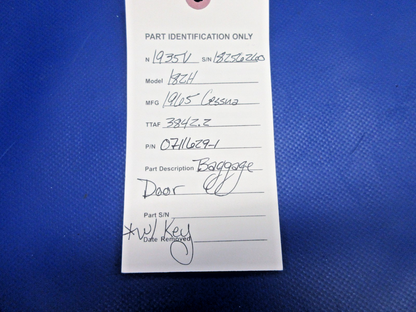 PART IDENTIFICATION ONLY
N 1935V S/N 18256260
Model 182H
MFG 1965 Cessna
TTAF 3842.2
P/N 0711629-1
Part Description Baggage
Door
Part S/N
*w/ Key
Date Removed